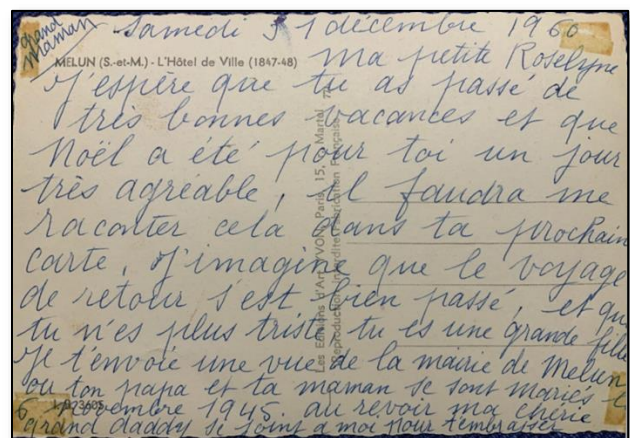 grand
maman
Samedi 31 décembre 1960
MELUN (S.-et-M.) - L'Hôtel de Ville (1847-48)
ma petite Roselyne
J'espère que tu as passé de
très bonnes vacances et que
Noël a été pour toi un jour
très agréable, il faudra me
raconter cela dans ta prochain
carte, J'imagine que le voyage
de retour s'est bien passé, et que
tu n'es plus triste tu es une grande fille
Je t'envoie une vue de la mairie de Melun
ou ton papa et ta maman se sont mariés l
6 1945. au revoir ma chérie
grand daddy se joint a moi pour t'embrasser
Les Editions d'Art YVON, Paris, 15, R. Martel
Reproduction Interdite Fabrication Française